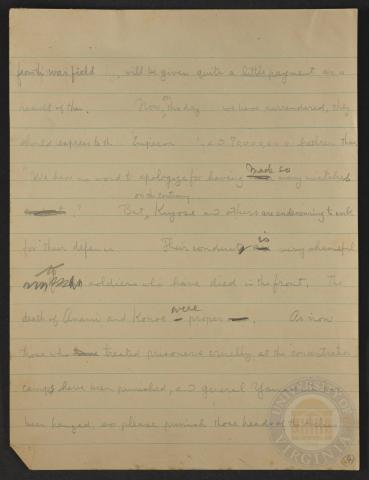 front war field ... will be given quite a little payment as a
result of this. Now, on this day we have surrendered, they
should express to the Emperor and brethren that
"We have no word to apologize for having made so many mistakes
." But, on the contrary, Kiyose and others are endeavoring to
for their defence. Their conduct is very shameful
to soldiers who have died in the front. The
death of Anami and Konoe were proper. As now
those who treated prisoners cruelly at the concentration
camps have been punished, and general
been hanged, so please punish those heads of the
UNIVERSITY OF VIRGINIA